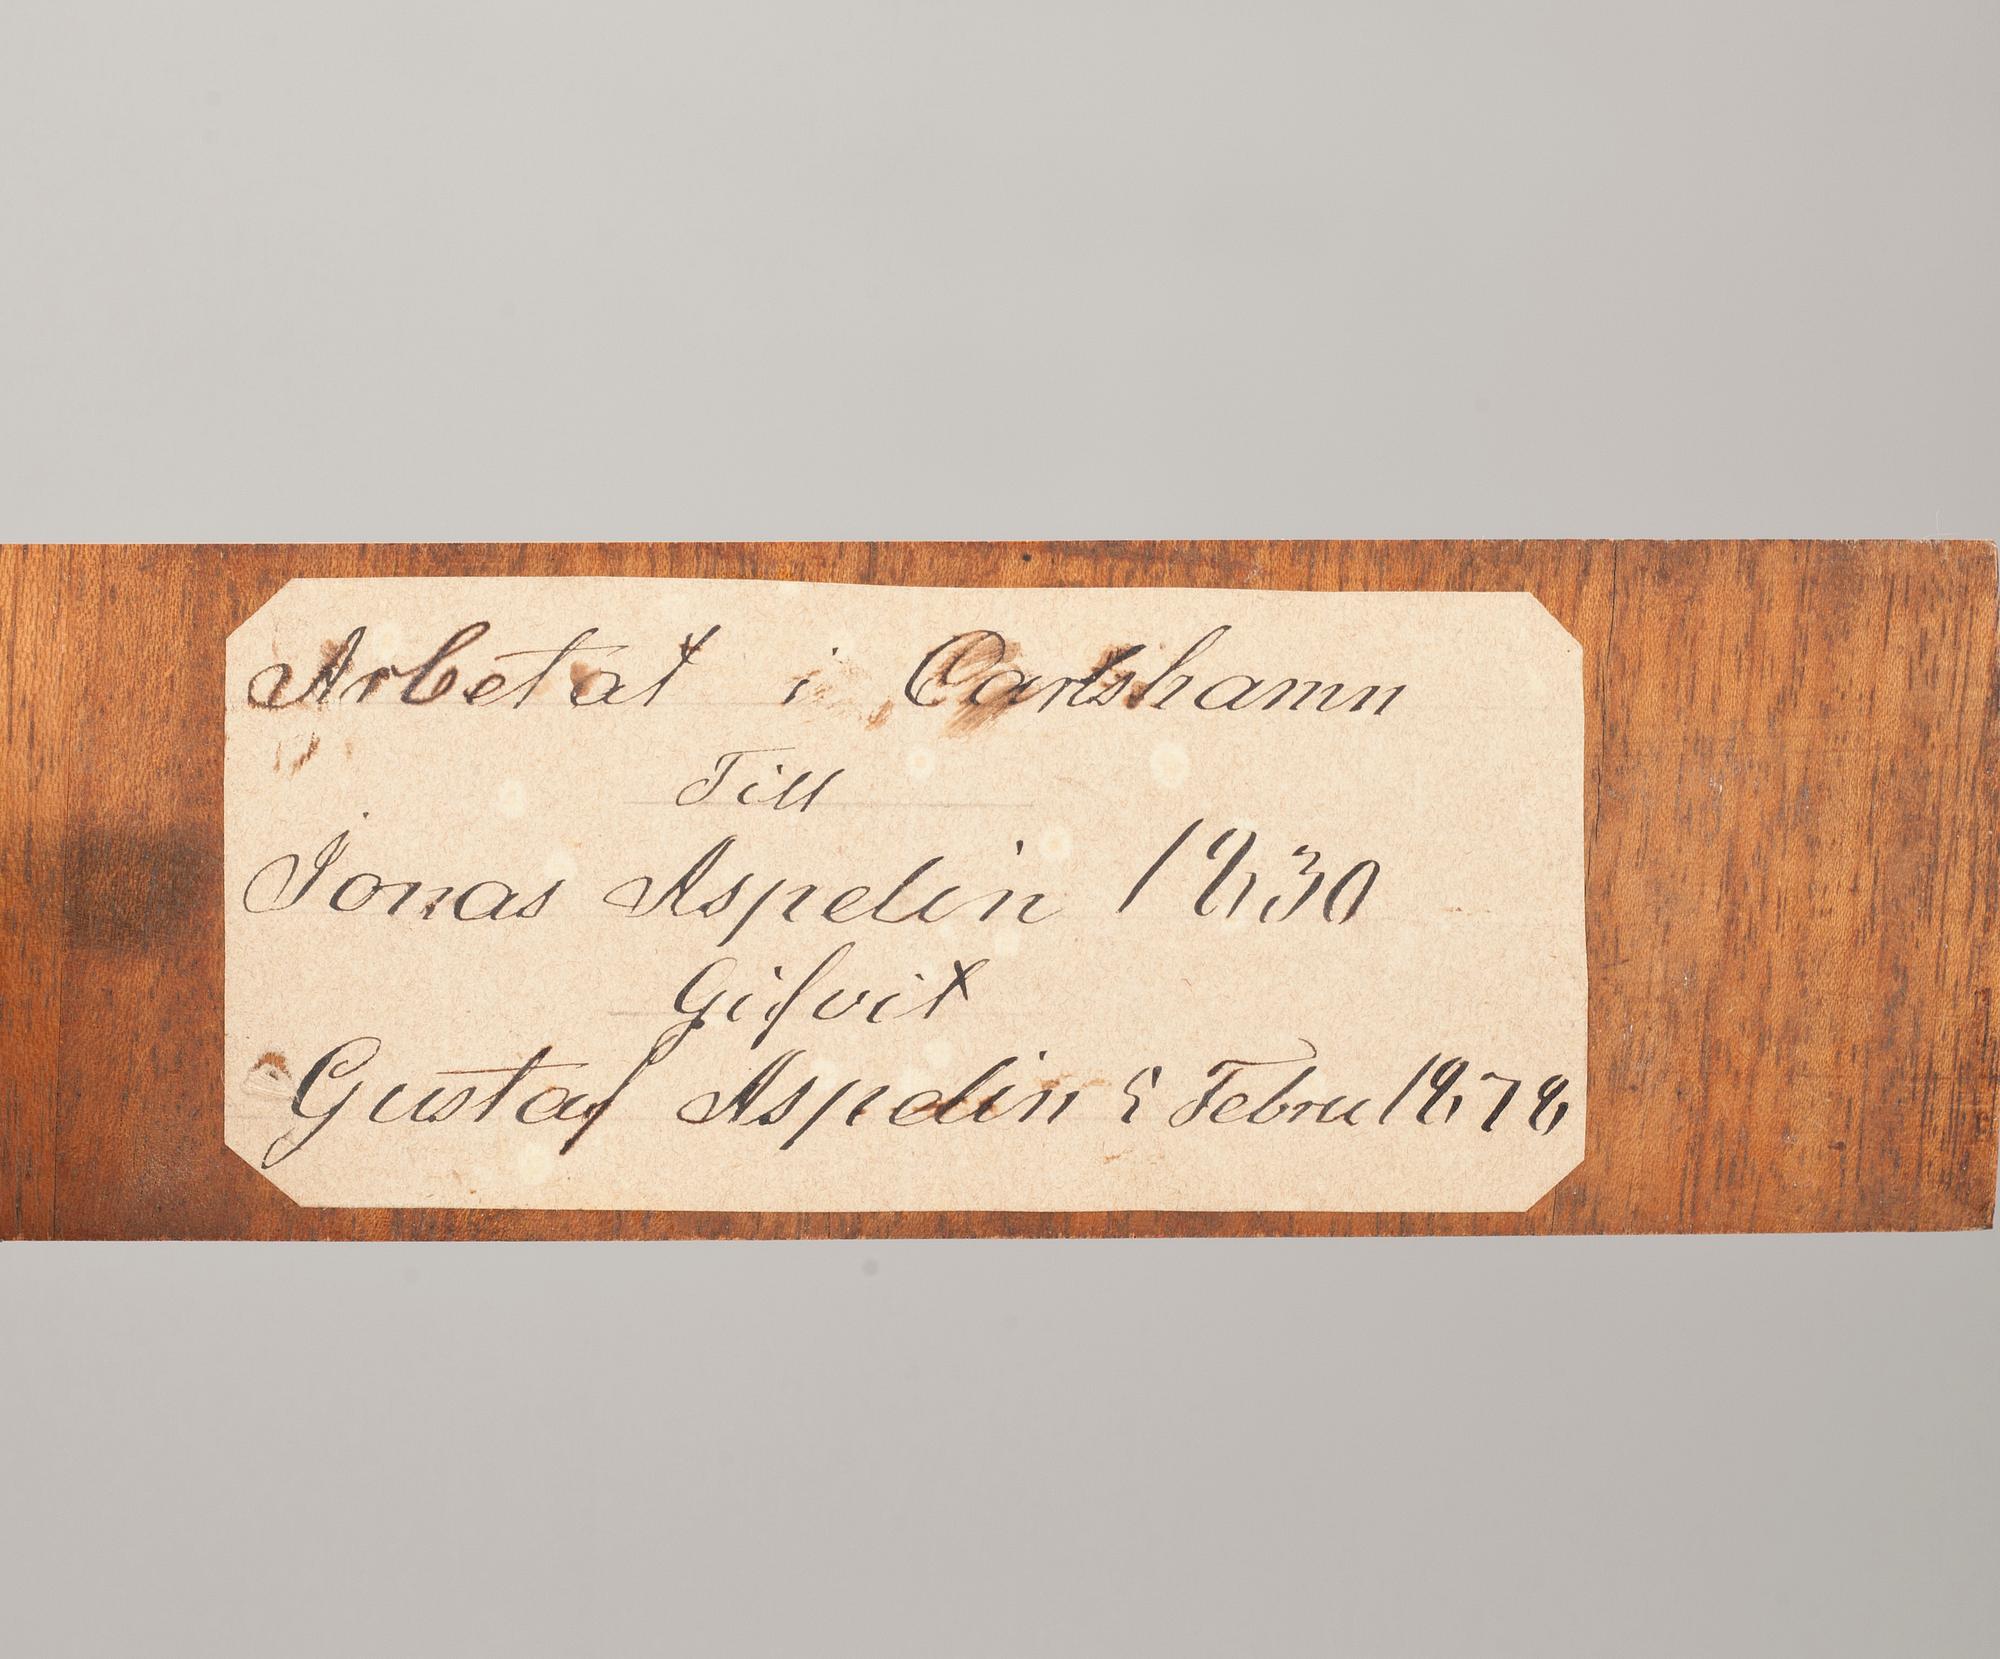 Arbetat i Carlshamn
Till
Jonas Aspelin 1830
Gifvit
Gustaf Aspelin 5 Febru 1878